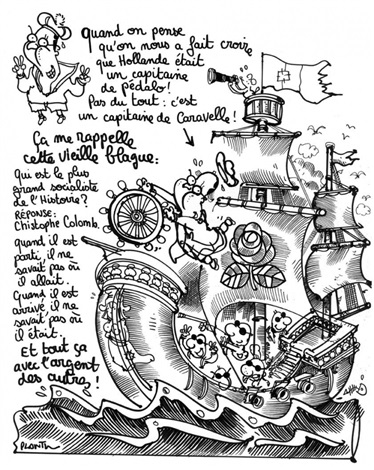 Quand on pense
qu'on nous a fait croire
que Hollande était
un capitaine
de pédalo!
Pas du tout : c'est
un capitaine de Caravelle!
Ça me rappelle
cette vieille blague:
Qui est le plus
grand socialiste
de l'Histoire?
RÉPONSE:
Chistophe Colomb.
Quand il est
parti, il ne
savait pas où
il allait.
Quand il est
arrivé, il ne
savait pas où
il était.
Et tout ça
avec l'argent
des autres!
PLANTU